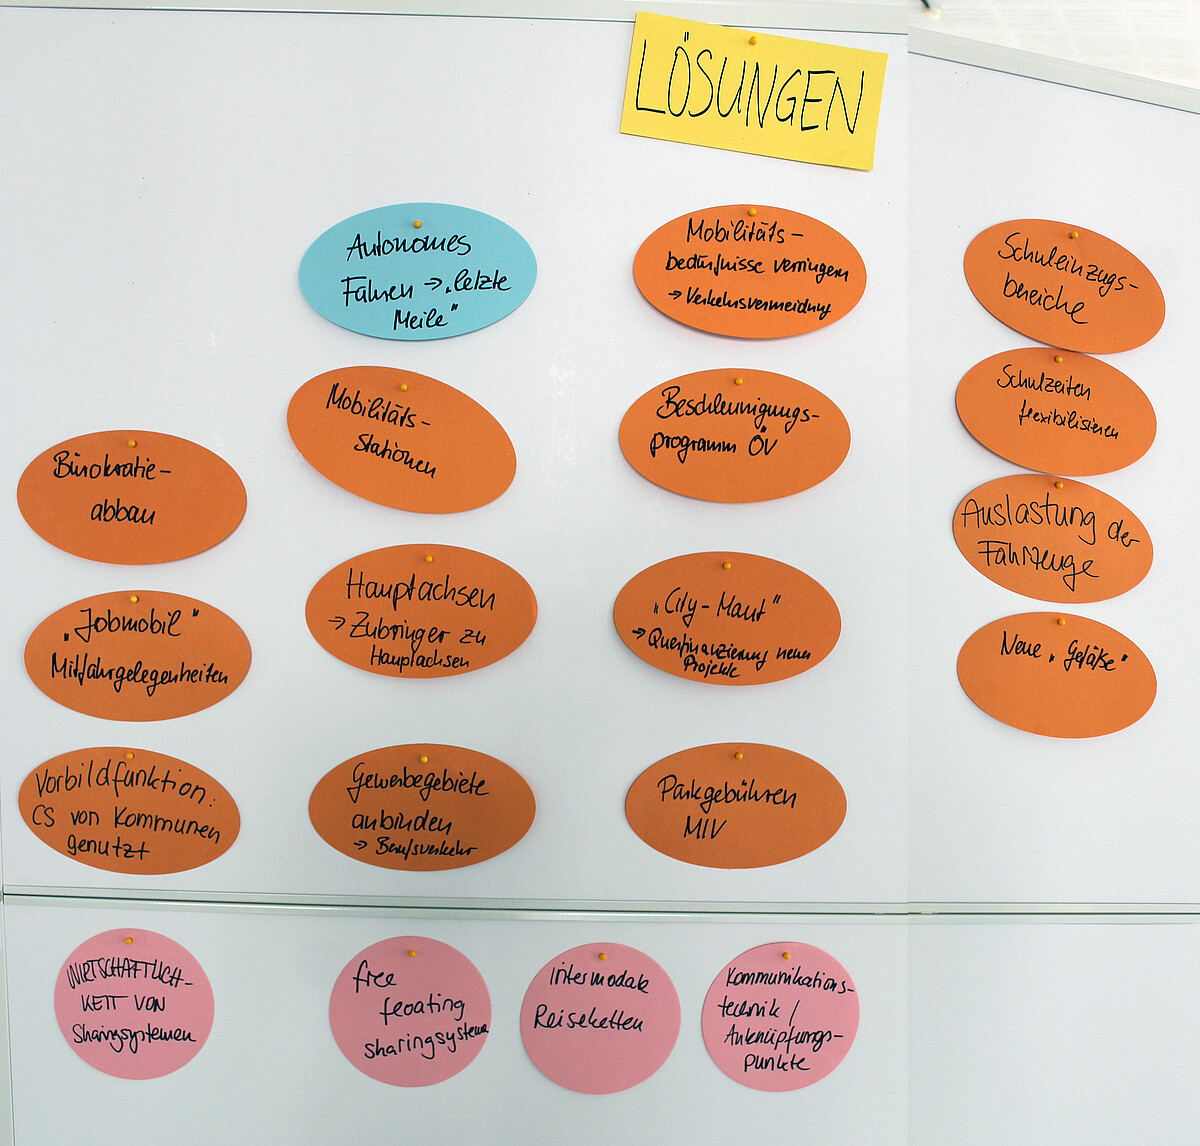 LÖSUNGEN
Bürokratie-
abbau
„Jobmobil"
Mitfahrgelegenheiten
Vorbildfunktion:
CS von Kommunen
genutzt
Autonomes
Fahren → „letzte
Meile"
Mobilitäts-
stationen
Hauptachsen
→ Zubringer zu
Hauptachsen
Gewerbegebiete
anbinden
→ Berufsverkehr
Mobilitäts-
bedürfnisse verringern
→ Verkehrsvermeidung
Beschleunigungs-
programm ÖV
„City-Maut"
→ Querfinanzierung neuer
Projekte
Parkgebühren
MIV
Schuleinzugs-
bereiche
Schulzeiten
flexibilisieren
Auslastung der
Fahrzeuge
Neue „Gefäße"
WIRTSCHAFTLICH-
KEIT VON
Sharingsystemen
free
feoating
sharingsysteme
intermodale
Reiseketten
Kommunikations-
technik /
Anknüpfungs-
punkte